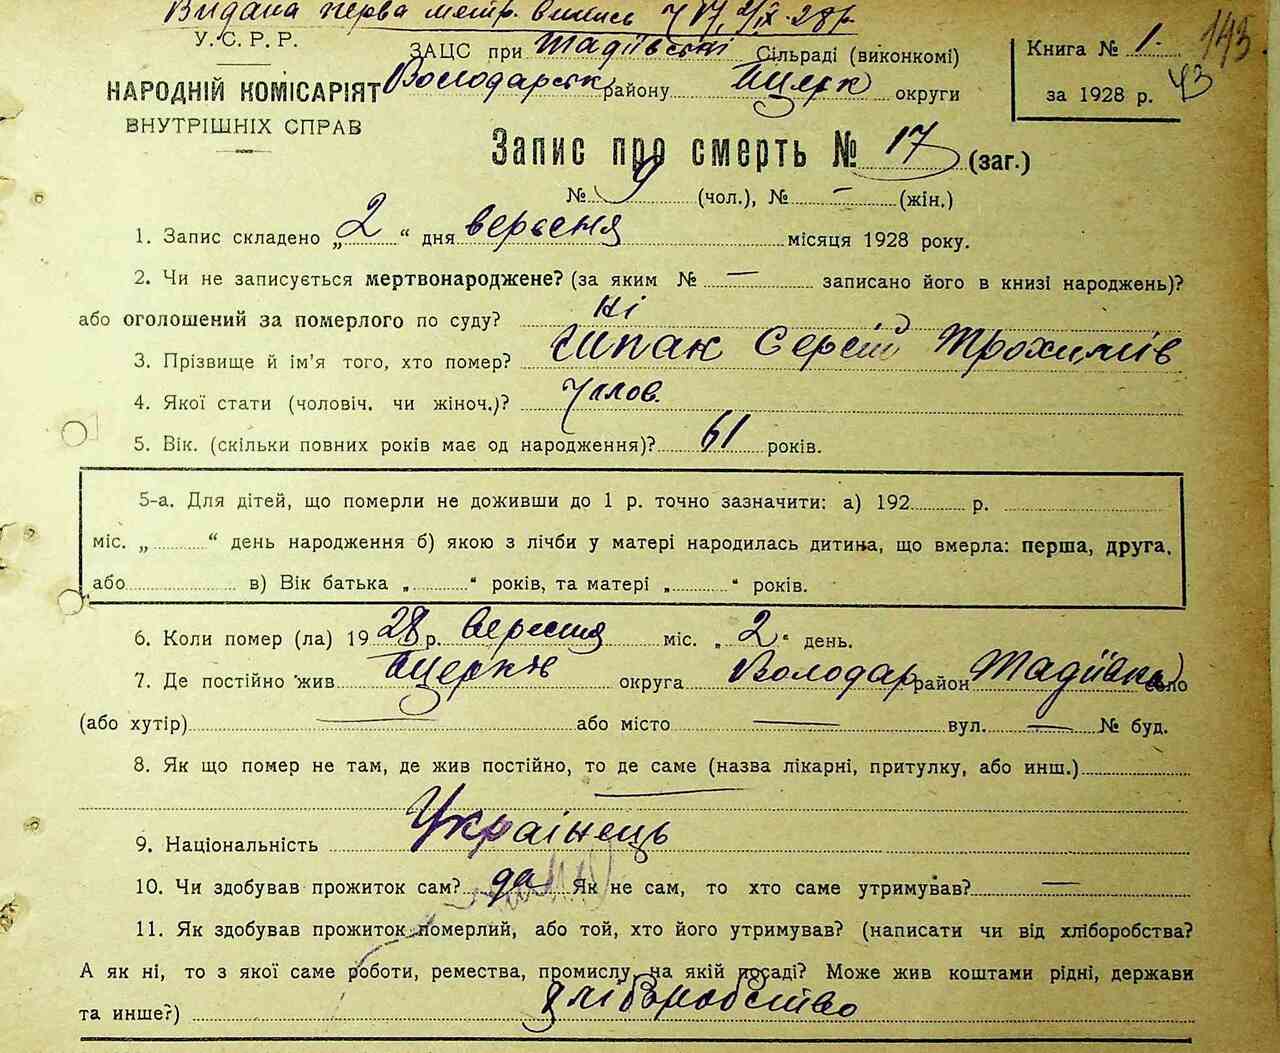 Видана перва метр. випись 2/ІХ-28р.
У. С. Р. Р.
НАРОДНІЙ КОМІСАРІЯТ
ВНУТРІШНІХ СПРАВ
ЗАЦС при Тадіївські Сільраді (виконкомі)
Володарськ району Бцерк округи
Книга № 1.
за 1928 р.
143
43
Запис про смерть № 17 (заг.)
№ 9 (чол.), № – (жін.)
1. Запис складено „2“ дня вересня місяця 1928 року.
2. Чи не записується мертвонароджене? (за яким № — записано його в книзі народжень)?
або оголошений за померлого по суду? Ні
3. Прізвище й ім'я того, хто помер? Шпак Сергій Трохимів
4. Якої стати (чоловіч. чи жіноч.)? Чолов.
5. Вік. (скільки повних років має од народження)? 61 років.
5-а. Для дітей, що померли не доживши до 1 р. точно зазначити: а) 192 р.
міс. „ “ день народження б) якою з лічби у матері народилась дитина, що вмерла: перша, друга,
або в) Вік батька „ “ років, та матері „ “ років.
6. Коли помер (ла) 1928 р. вересня міс. „2“ день.
7. Де постійно жив Бцерків округа Володар район Тадіївка село
(або хутір) — або місто — вул. — № буд.
8. Як що помер не там, де жив постійно, то де саме (назва лікарні, притулку, або инш.)
—
9. Національність Українець
10. Чи здобував прожиток сам? да Як не сам, то хто саме утримував? —
11. Як здобував прожиток померлий, або той, хто його утримував? (написати чи від хліборобства?
А як ні, то з якої саме роботи, ремества, промислу, на якій посаді? Може жив коштами рідні, держави
та инше?) хліборобство